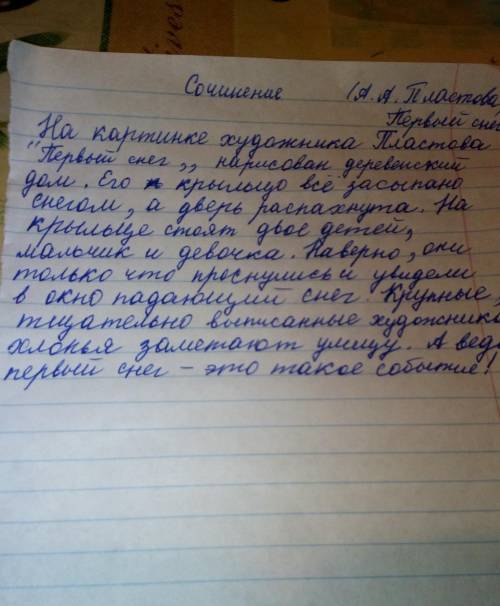 Сочинение (А. А. Пластова
Первый снег
На картинке художника Пластова
"Первый снег,, нарисован деревенский
дом. Его крыльцо всё засыпано
снегом, а дверь распахнута. На
крыльце стоят двое детей,
мальчик и девочка. Наверно, они
только что проснулись и увидели
в окно падающий снег. Крупные
тщательно выписанные художнико
хлопья заметают улицу. А ведь
первый снег - это такое событие!